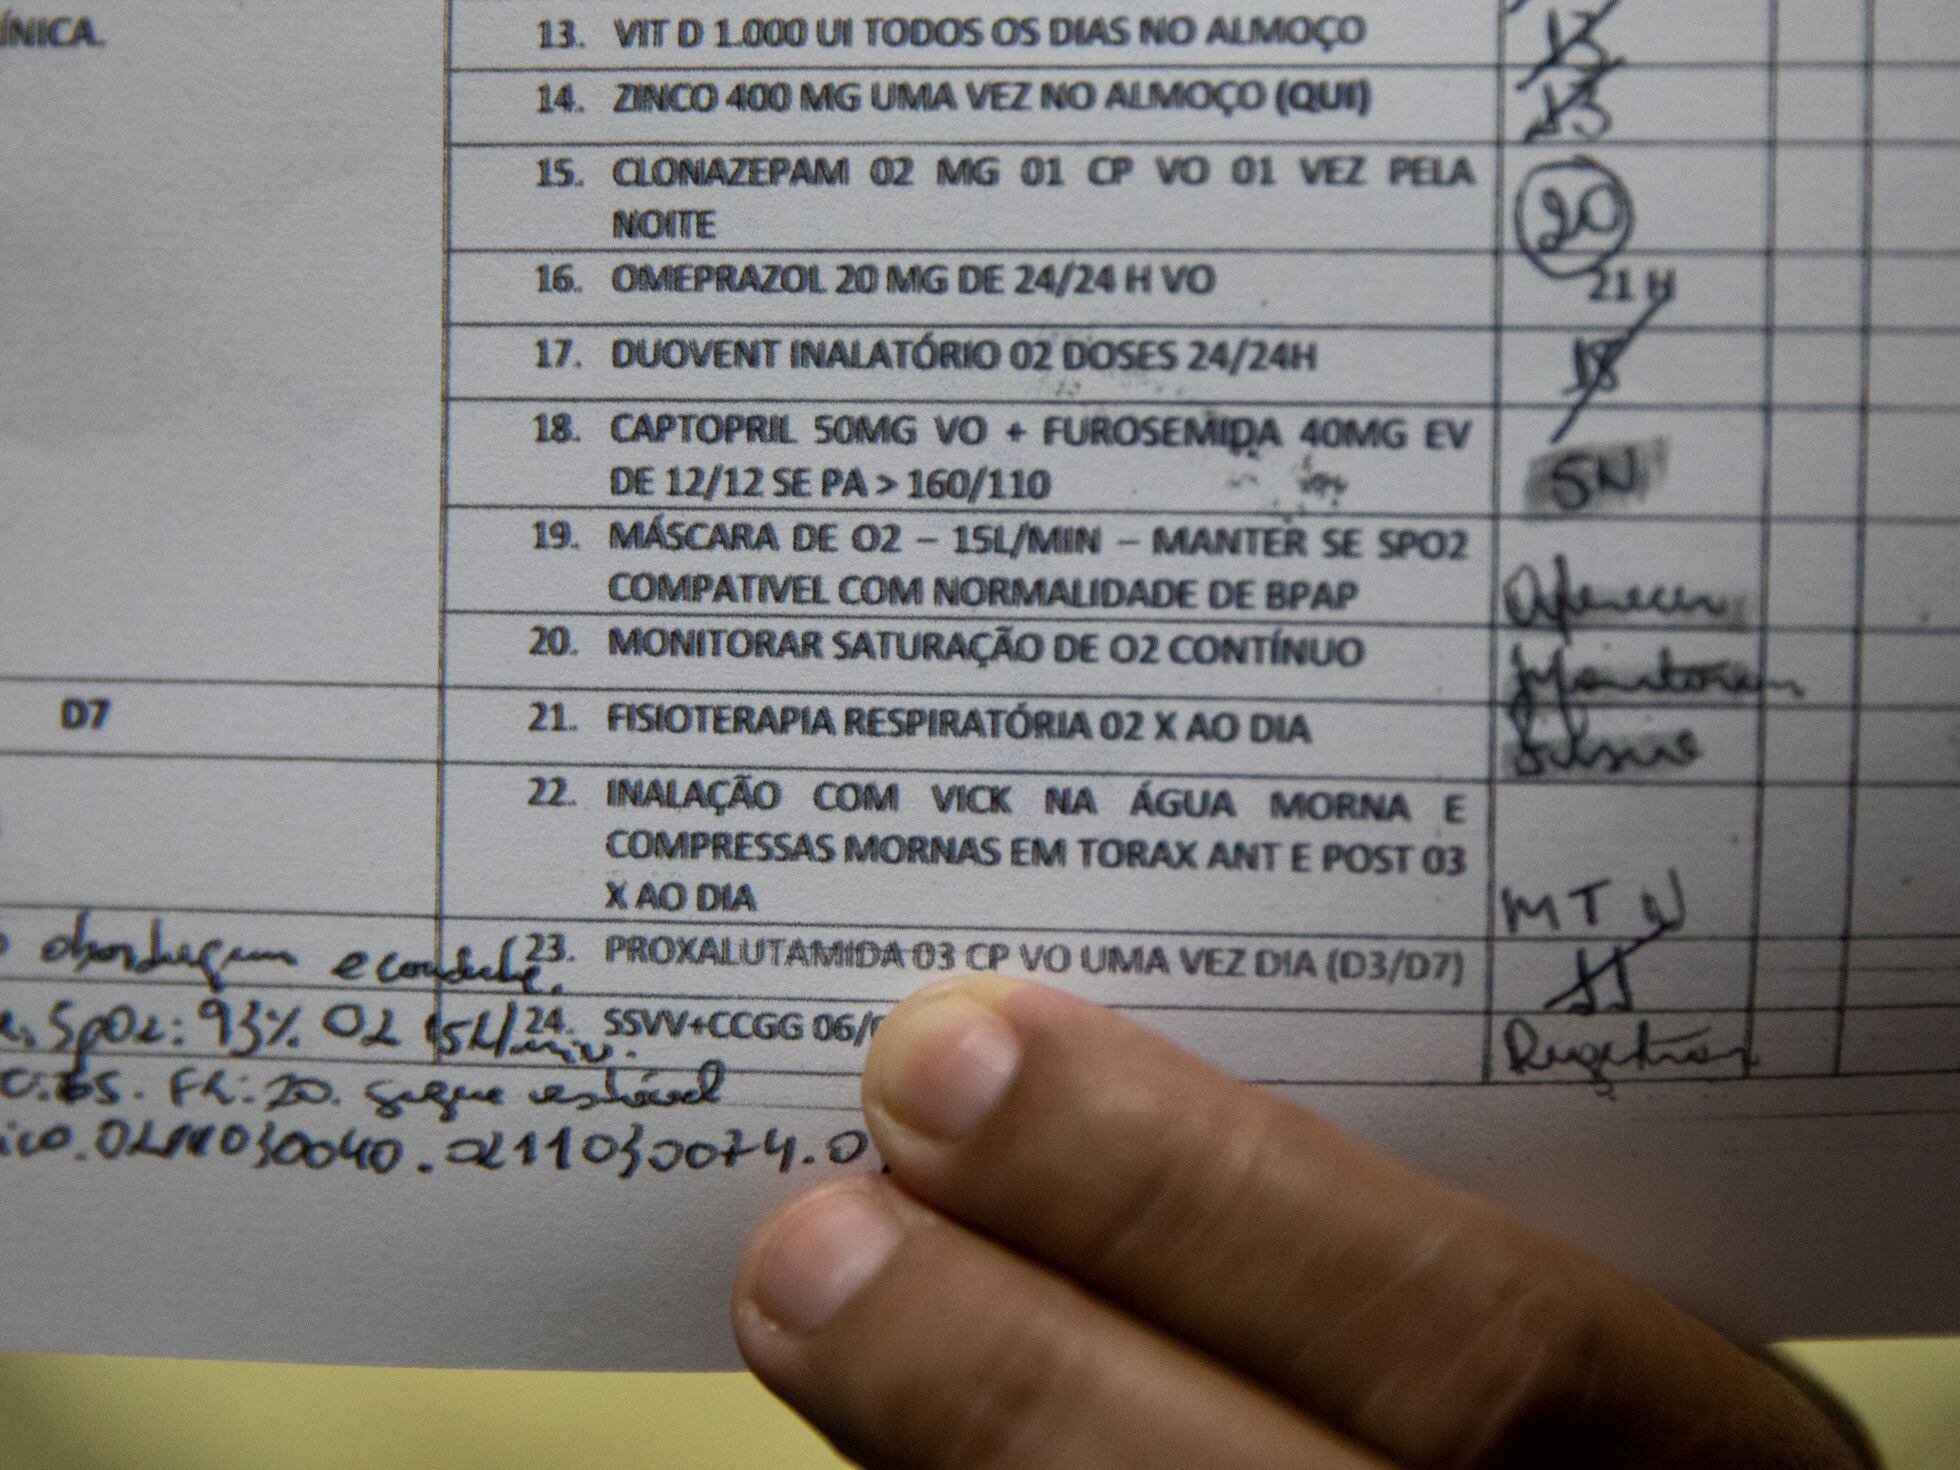 ÍNICA.
13. VIT D 1.000 UI TODOS OS DIAS NO ALMOÇO
13
14. ZINCO 400 MG UMA VEZ NO ALMOÇO (QUI)
13
15. CLONAZEPAM 02 MG 01 CP VO 01 VEZ PELA
NOITE
20
16. OMEPRAZOL 20 MG DE 24/24 H VO
21 H
17. DUOVENT INALATÓRIO 02 DOSES 24/24H
18
18. CAPTOPRIL 50MG VO + FUROSEMIDA 40MG EV
DE 12/12 SE PA > 160/110
SN
19. MÁSCARA DE O2 – 15L/MIN – MANTER SE SPO2
COMPATIVEL COM NORMALIDADE DE BPAP
Oferecer
20. MONITORAR SATURAÇÃO DE O2 CONTÍNUO
Monitorar
D7
21. FISIOTERAPIA RESPIRATÓRIA 02 X AO DIA
22. INALAÇÃO COM VICK NA ÁGUA MORNA E
COMPRESSAS MORNAS EM TORAX ANT E POST 03
X AO DIA
M T N
23. PROXALUTAMIDA 03 CP VO UMA VEZ DIA (D3/D7)
11
abordagem e conduta.
24. SSVV+CCGG 06/
Registrar
SpO2: 93% O2 15L/min.
65. FR: 20. segue estável
ico. 0211030040. 0211030074. 0